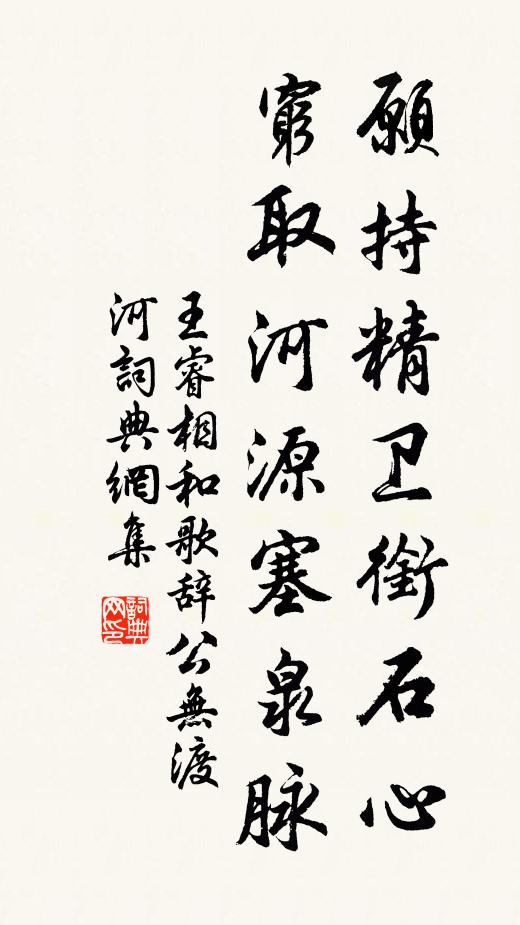 願持精卫銜石心
窮取河源塞泉脉
王睿相和歌辞公無渡
河詞典網集
詞典网印